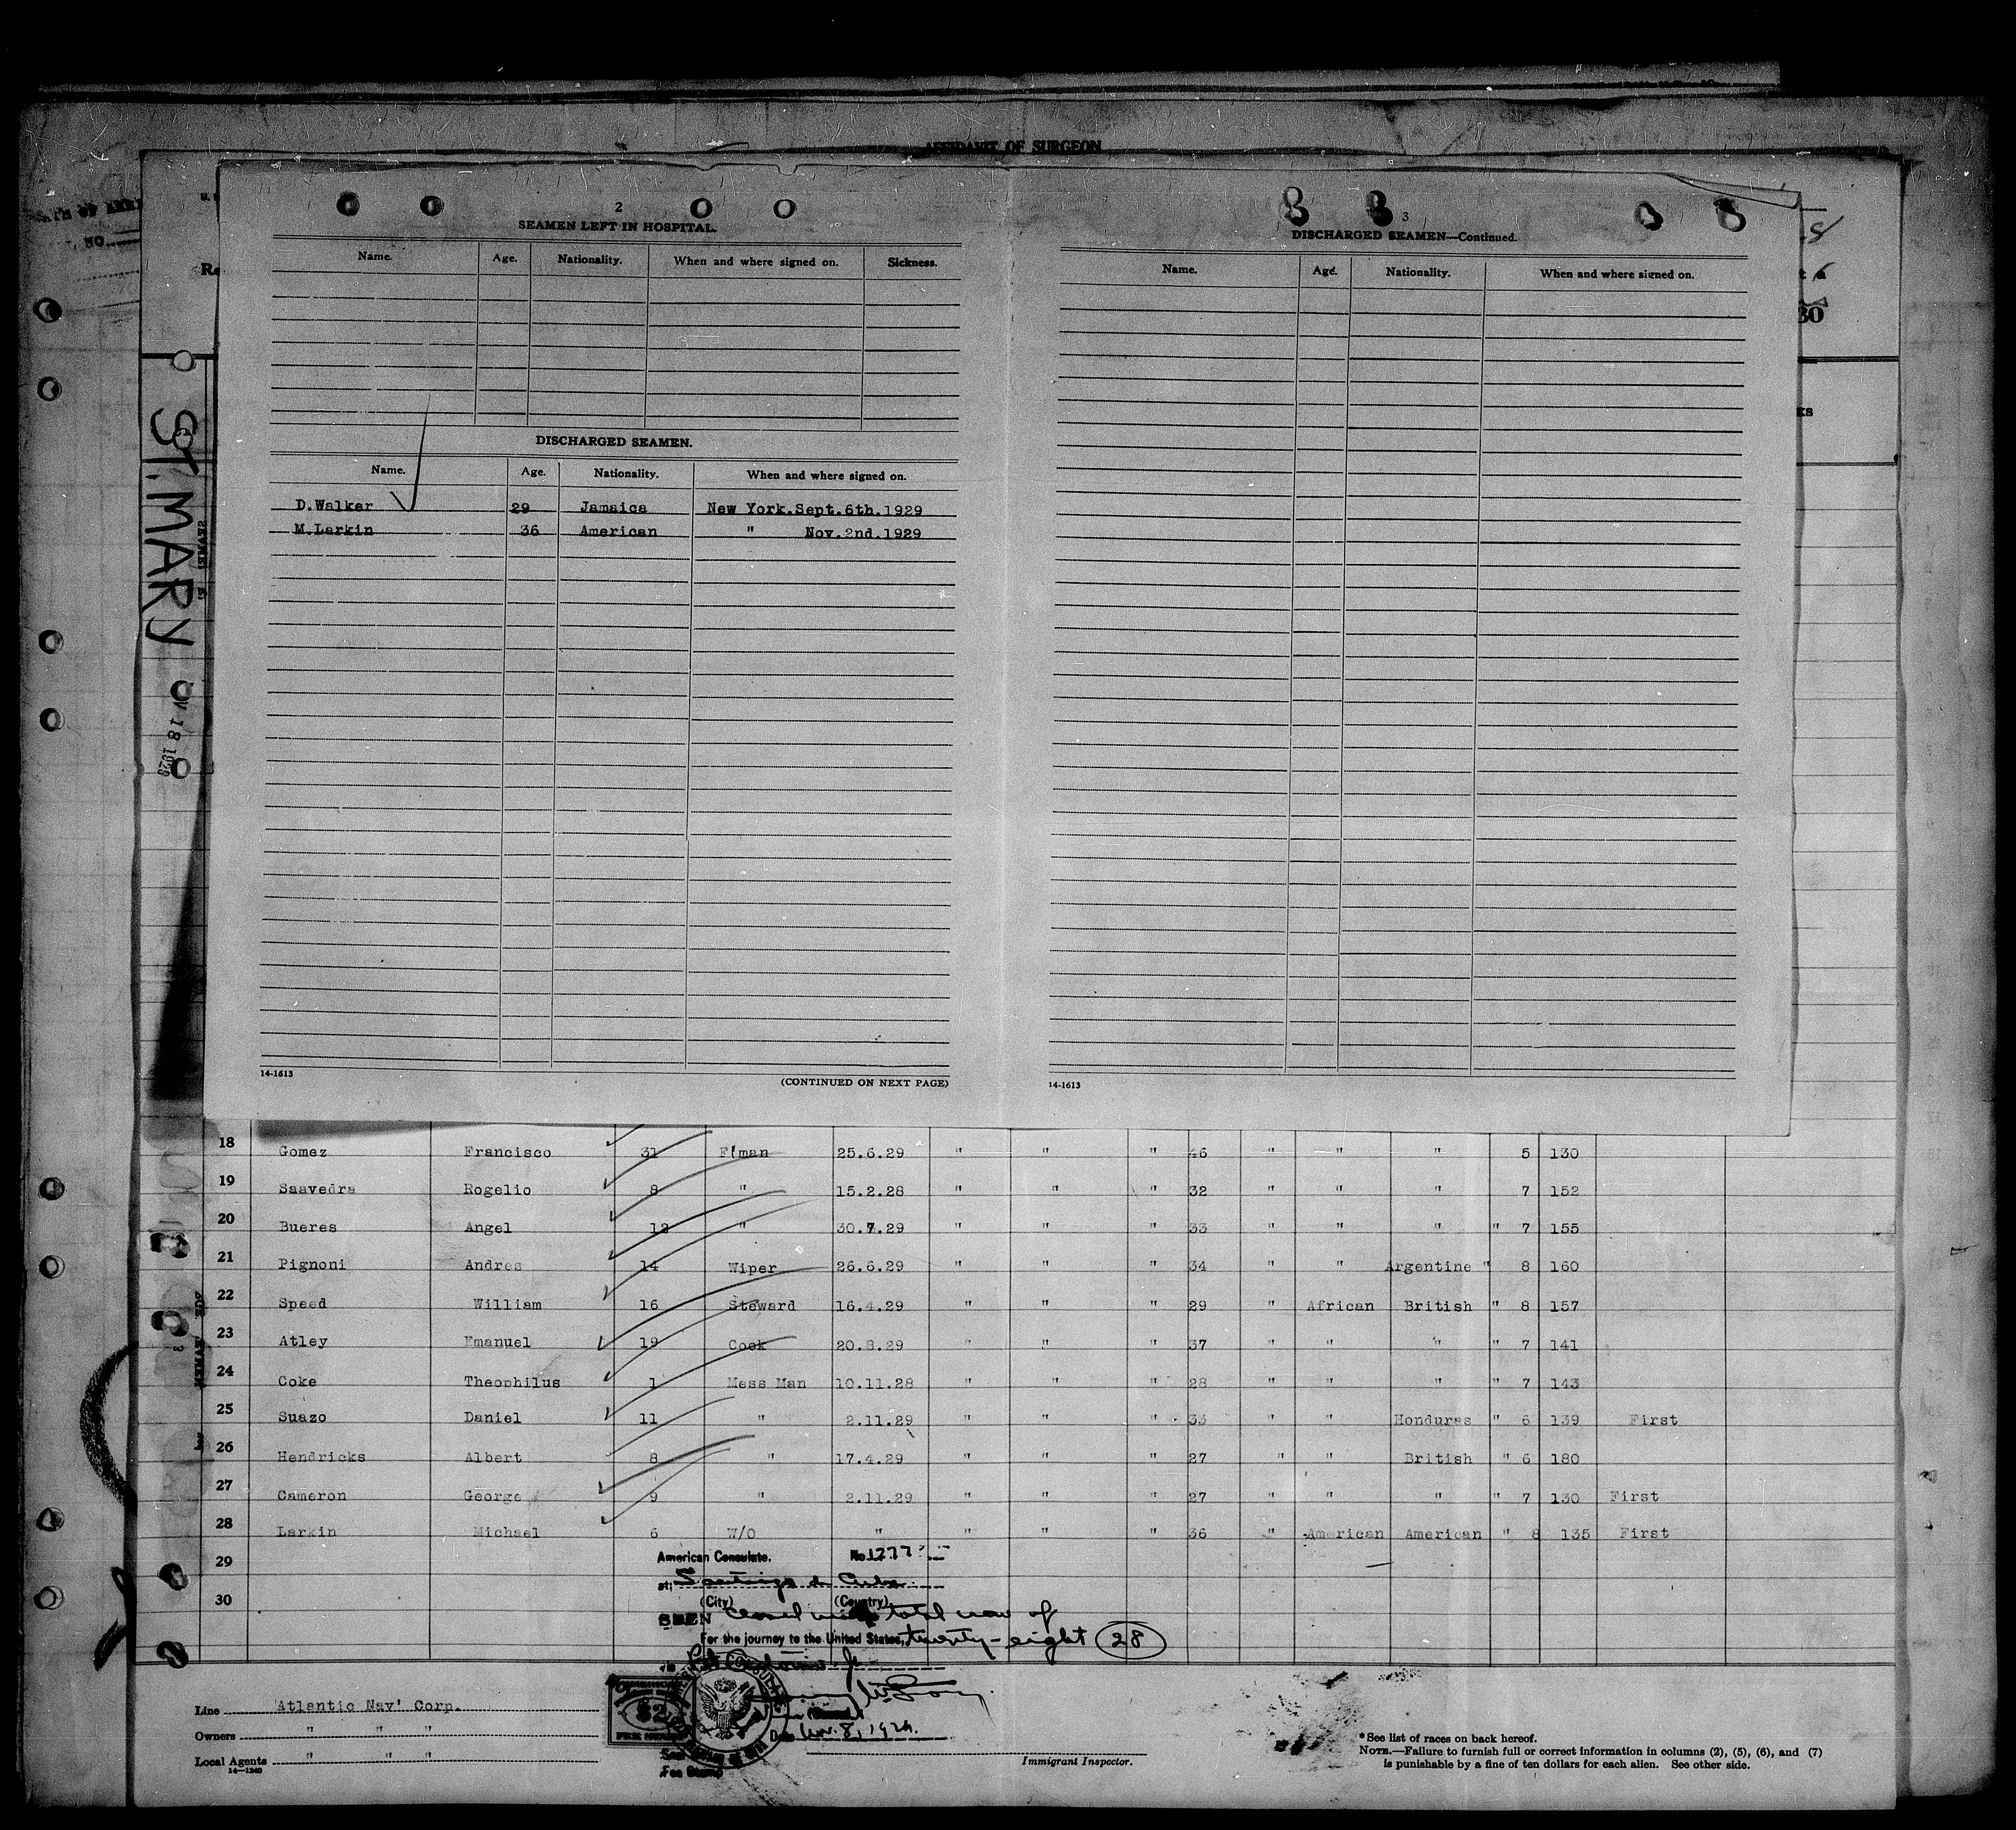 AFFIDAVIT OF SURGEON
2
SEAMEN LEFT IN HOSPITAL.
Name. Age. Nationality. When and where signed on. Sickness.
DISCHARGED SEAMEN.
Name. Age. Nationality. When and where signed on.
D.Walker 29 Jamaica New York.Sept.6th.1929
M.Larkin 36 American " Nov.2nd.1929
14-1613
(CONTINUED ON NEXT PAGE)
3
DISCHARGED SEAMEN—Continued.
Name. Age. Nationality. When and where signed on.
14-1613
NO.
30
ks
ST. MARY
V 18 1929
18 Gomez Francisco 31 F'man 25.6.29 " " " 46 " " " 5 130
19 Saavedra Rogelio 8 " 15.2.28 " " " 32 " " " 7 152
20 Bueres Angel 12 " 30.7.29 " " " 33 " " " " 7 155
21 Pignoni Andres 14 Wiper 26.6.29 " " " 34 " " Argentine " 8 160
22 Speed William 16 Steward 16.4.29 " " " 29 " African British " 8 157
23 Atley Emanuel 19 Cook 20.8.29 " " " 37 " " " " 7 141
24 Coke Theophilus 1 Mess Man 10.11.28 " " " 28 " " " " 7 143
25 Suazo Daniel 11 " 2.11.29 " " " 33 " " Honduras " 6 139 First
26 Hendricks Albert 8 " 17.4.29 " " " 27 " " British " 6 180
27 Cameron George 9 " 2.11.29 " " " 27 " " " " 7 130 First
28 Larkin Michael 6 W/O " " " " 36 " American American " 8 135 First
29
30
American Consulate. No 1277
at Santiago de Cuba
(City) (Country)
SEEN total crew of
For the journey to the United States, twenty-eight 28
via
Date Nov. 8, 1929.
Seal
Fee Stamp
Line Atlantic Nav' Corp.
Owners " " "
Local Agents " " "
14—1240
Immigrant Inspector.
*See list of races on back hereof.
NOTE.—Failure to furnish full or correct information in columns (2), (5), (6), and (7)
is punishable by a fine of ten dollars for each alien. See other side.